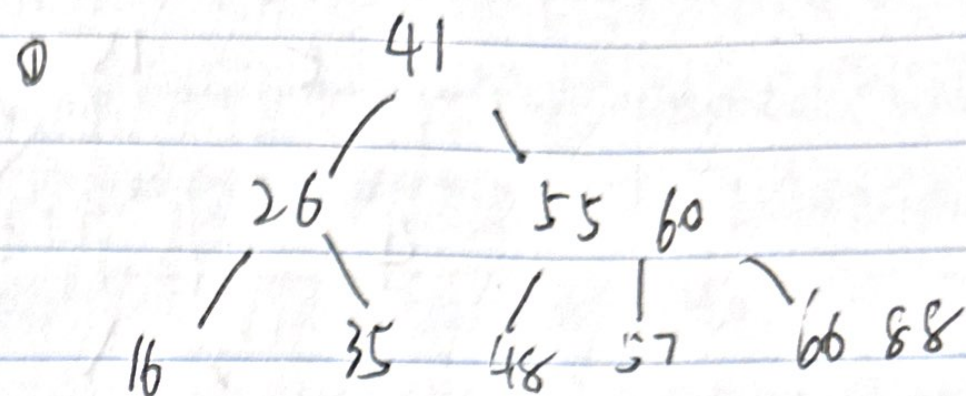 ① 41
26 55 60
16 35 48 57 66 88